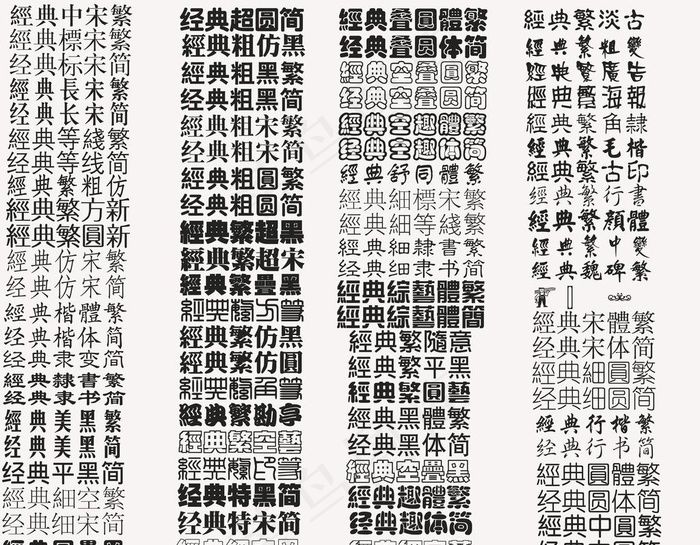 經典中宋繁
經典標宋繁
经典标宋简
經典長宋繁
经典长宋简
經典等綫繁
经典等线简
經典繁粗仿
經典繁方新
經典繁圓新
經典仿宋繁
经典仿宋简
經典楷體繁
经典楷体简
经典隶变简
經典隸書繁
经典隶书简
經典美黑繁
经典美黑简
经典平黑简
經典細空繁
经典超圆简
經典粗仿黑
經典粗黑繁
经典粗黑简
經典粗宋繁
经典粗宋简
經典粗圓繁
经典粗圆简
經典繁超黑
經典繁超宋
經典繁疊黑
經典繁方篆
經典繁仿黑
經典繁仿圓
經典繁角篆
經典繁勘亭
經典繁空藝
經典繁印篆
经典特黑简
经典特宋简
經典疊圓體繁
经典叠圆体简
經典空疊圓繁
经典空叠圆简
經典空趣體繁
经典空趣体简
經典舒同體繁
經典細標宋繁
經典細等綫繁
經典細隸書繁
经典细隶书简
經典綜藝體繁
经典综艺体简
經典繁隨意
經典繁平黑
經典繁圓藝
經典黑體繁
经典黑体简
經典空疊黑
經典趣體繁
经典趣体简
經典繁淡古
經典繁粗變
經典繁廣告
經典繁海報
經典繁角隸
經典繁毛楷
經典繁古印
經典繁行書
經典繁顏體
經典繁中變
經典繁魏碑
經典宋體繁
经典宋体简
經典細圓繁
经典细圆简
經典行楷繁
经典行书简
經典圓體繁
经典圆体简
經典中圓繁